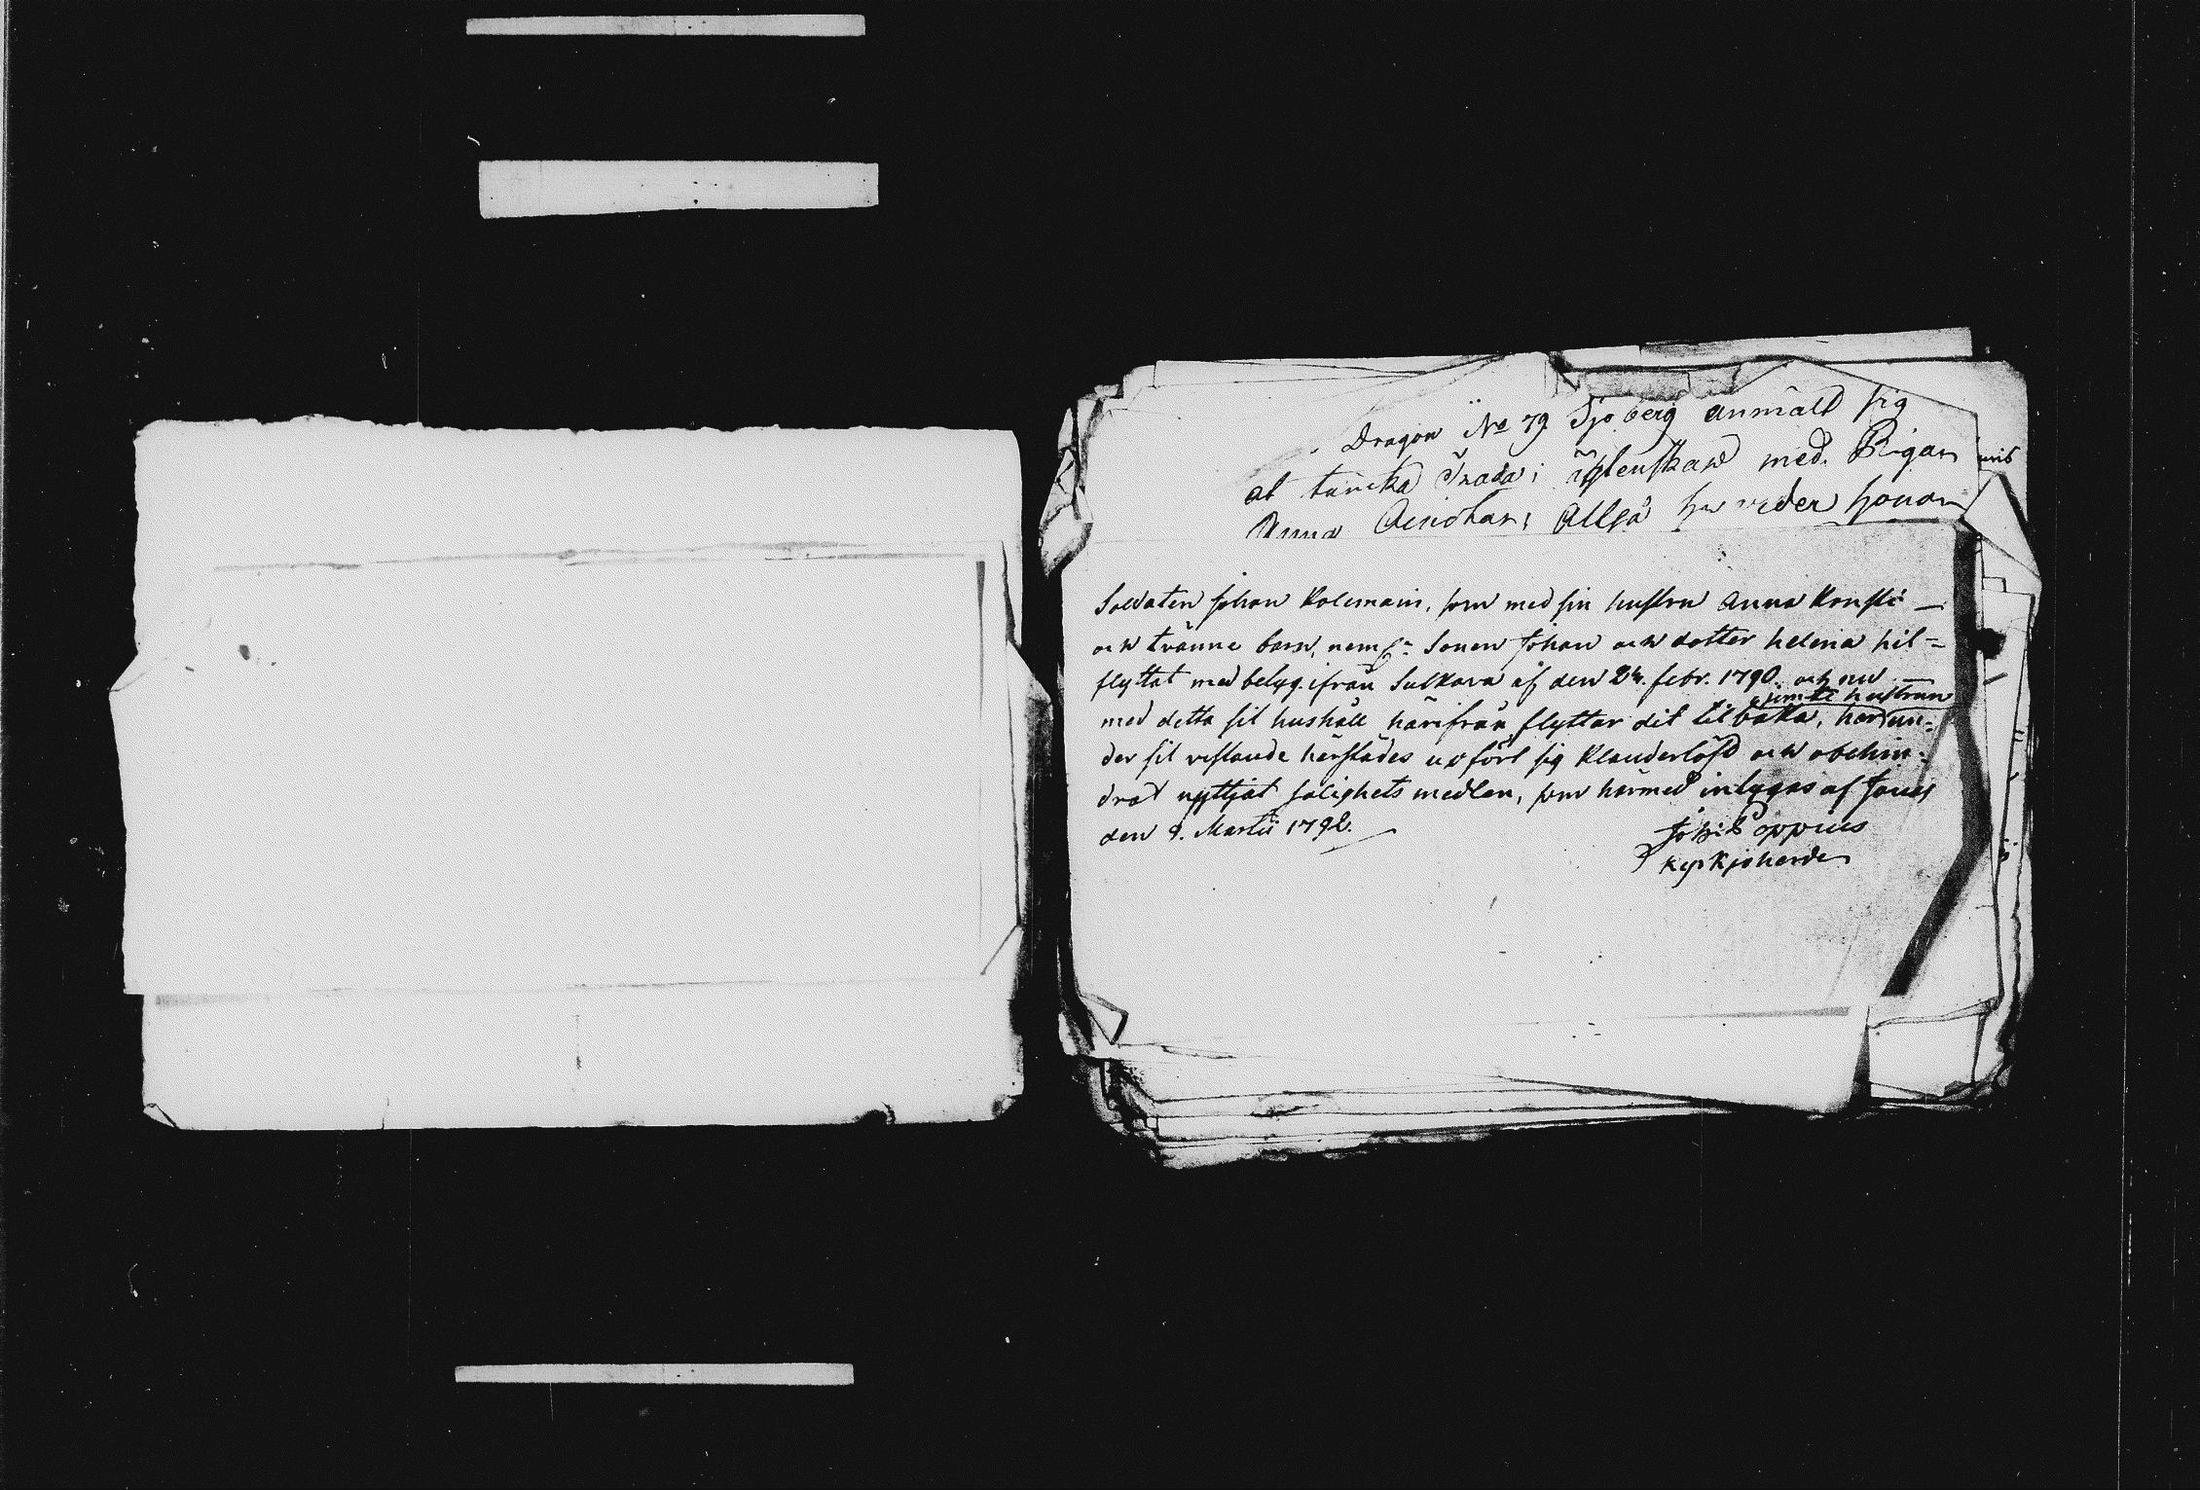 Dragon No 79 Sjöberg anmält sig
at täncka träda i äktenskap med Pigan
Anna Alltså honom
Soldaten Johan Kolemain, som med sin hustru Anna Konsti
och tvänne barn, neml: Sonen Johan och dotter helena hit=
flyttat med betyg ifrån Sulkava af den 24. febr. 1790. och nu
med detta sit hushåll härifrån flyttar dit tilbaka, har jemte hustrun un=
der sit vistande härstädes upfört sig klanderlöst och obehin=
drat nyttjat salighets medlen, som härmed intygas af Jouis
den 9. Martii 1792.
Joh: Poppius
Kyrkjoherde